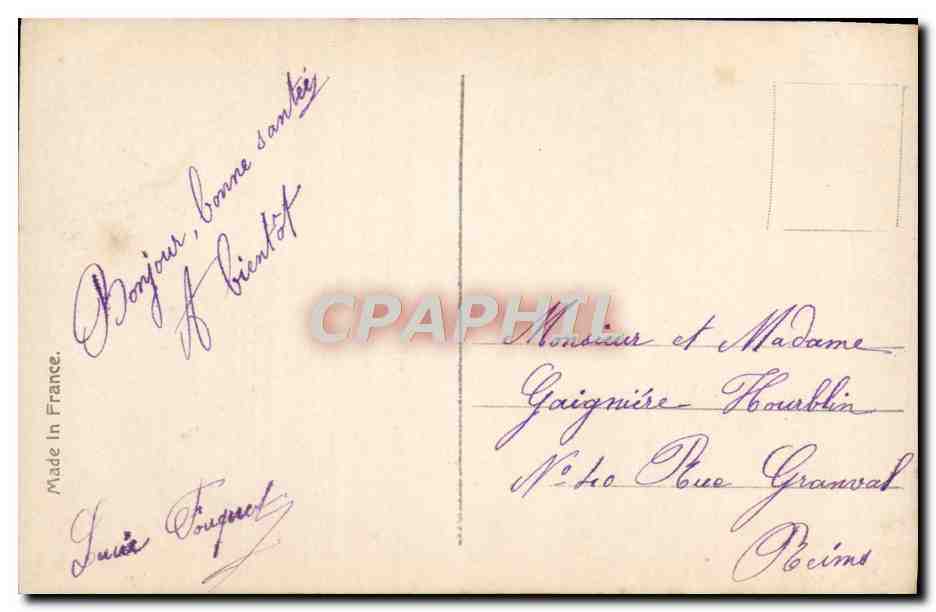 Bonjour, bonne santée
A bientôt
Lucie Fouquet
Made In France.
CPAPHIL
Monsieur et Madame
Gaignière Hourblin
N° 40 Rue Granval
Reims